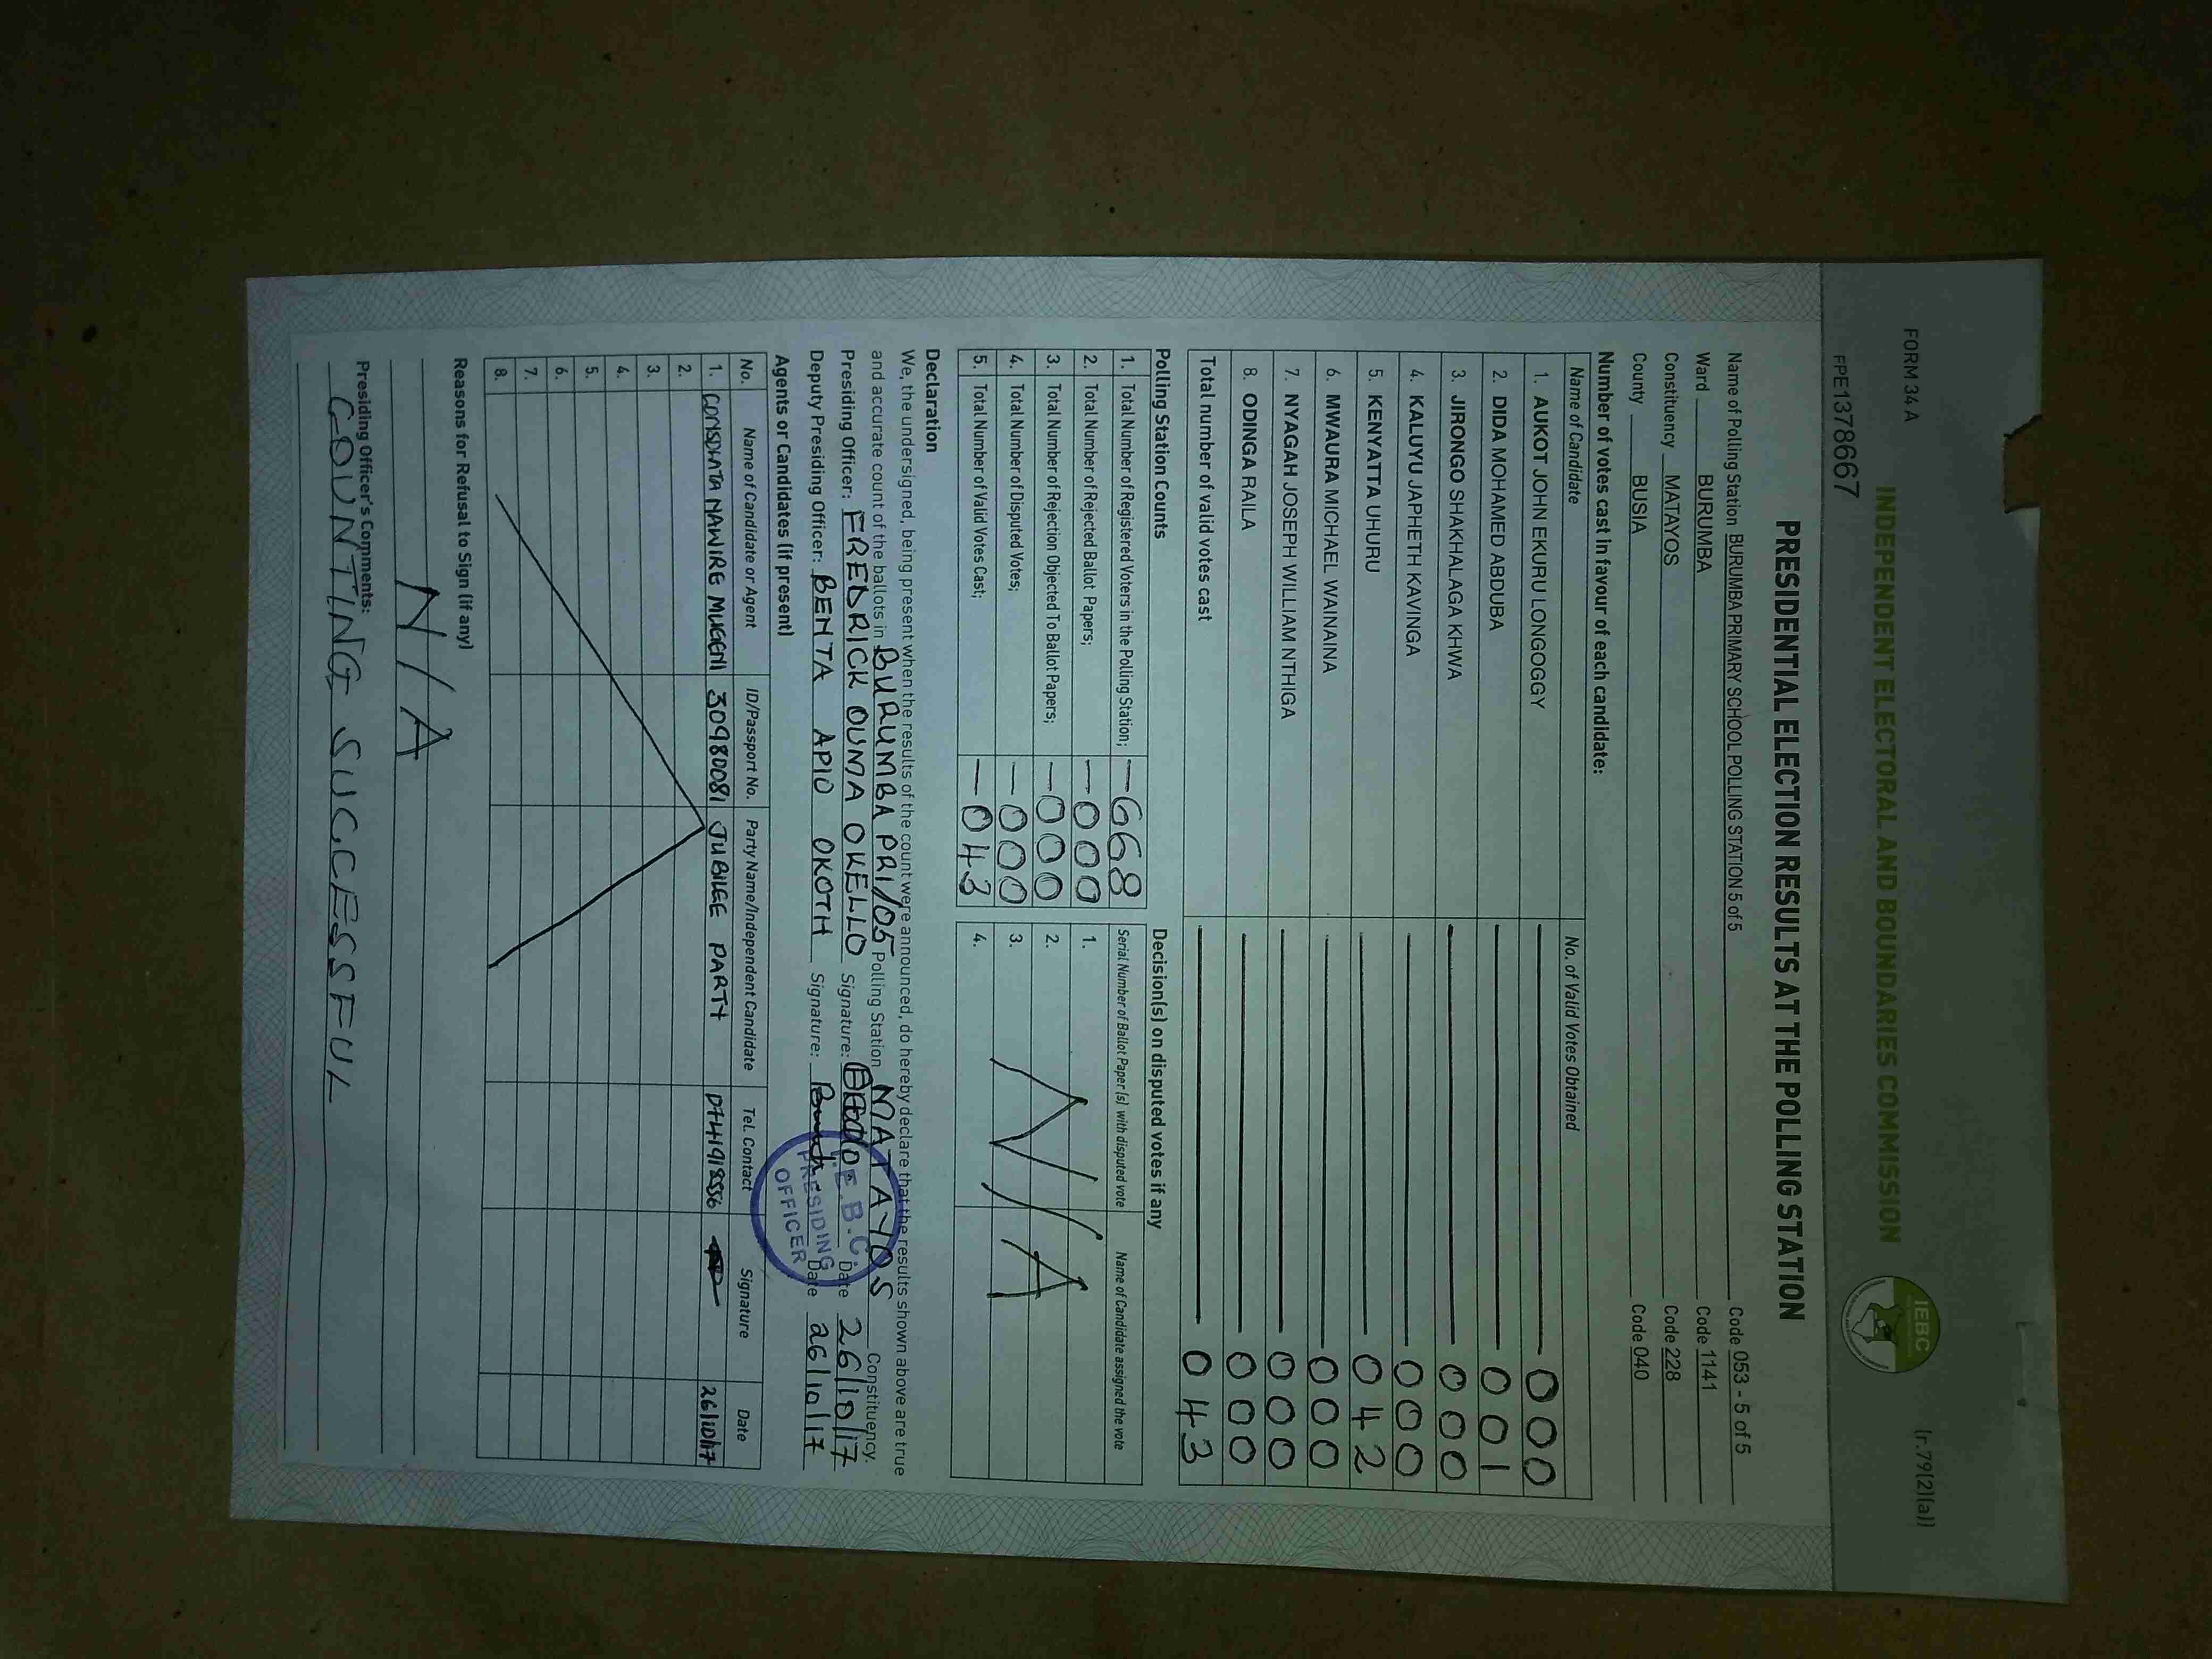 FORM 34 A
(r.79(2)(a))
INDEPENDENT ELECTORAL AND BOUNDARIES COMMISSION
IEBC
FPE1378667
PRESIDENTIAL ELECTION RESULTS AT THE POLLING STATION
Name of Polling Station BURUMBA PRIMARY SCHOOL POLLING STATION 5 of 5 Code 053 - 5 of 5
Ward BURUMBA Code 1141
Constituency MATAYOS Code 228
County BUSIA Code 040
Number of votes cast in favour of each candidate:
Name of Candidate No. of Valid Votes Obtained
1. AUKOT JOHN EKURU LONGOGGY 000
2. DIDA MOHAMED ABDUBA 001
3. JIRONGO SHAKHALAGA KHWA 000
4. KALUYU JAPHETH KAVINGA 000
5. KENYATTA UHURU 042
6. MWAURA MICHAEL WAINAINA 000
7. NYAGAH JOSEPH WILLIAM NTHIGA 000
8. ODINGA RAILA 000
Total number of valid votes cast 043
Polling Station Counts
1. Total Number of Registered Voters in the Polling Station; -668
2. Total Number of Rejected Ballot Papers; -000
3. Total Number of Rejection Objected To Ballot Papers; -000
4. Total Number of Disputed Votes; -000
5. Total Number of Valid Votes Cast; -043
Decision(s) on disputed votes if any
Serial Number of Ballot Paper(s) with disputed vote Name of Candidate assigned the vote
1.
2.
3.
4.
N/A
Declaration
We, the undersigned, being present when the results of the count were announced, do hereby declare that the results shown above are true
and accurate count of the ballots in BURUMBA PRI/05 Polling Station MATAYOS Constituency.
Presiding Officer: FREDRICK OUMA OKELLO Signature: Date 26/10/17
Deputy Presiding Officer: BENTA APIO OKOTH Signature: Date 26/10/17
I.E.B.C.
PRESIDING
OFFICER
Agents or Candidates (if present)
No. Name of Candidate or Agent ID/Passport No. Party Name/Independent Candidate Tel. Contact Signature Date
1. NAWIRE MUGENI 30980081 JUBILEE PARTY 26/10/17
2.
3.
4.
5.
6.
7.
8.
Reasons for Refusal to Sign (if any)
N/A
Presiding Officer's Comments:
COUNTING SUCCESSFUL